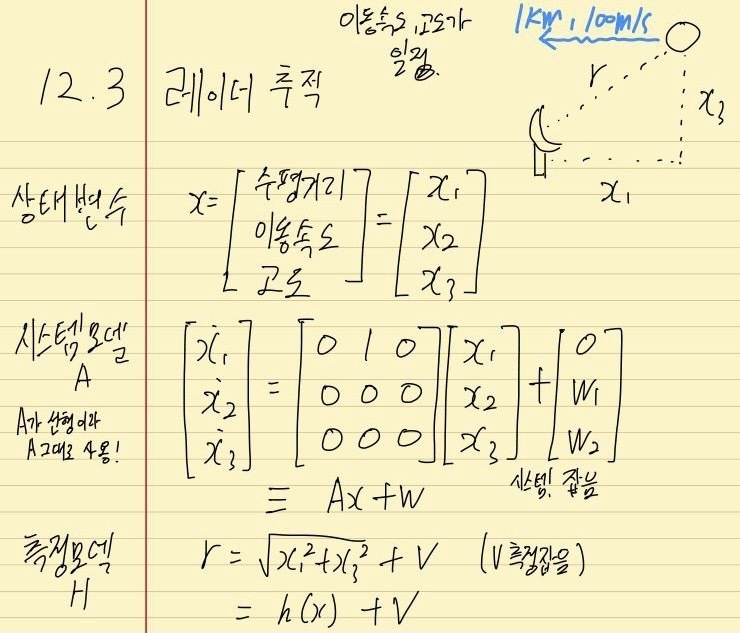 이동속도, 고도가
일정.
1km, 100m/s
12.3 레이더 추적
r
x₃
x₁
상태변수
x = [수평거리 이동속도 고도] = [x₁ x₂ x₃]
시스템모델
A
A가 선형이라
A 그대로 사용!
[ẋ₁ ẋ₂ ẋ₃] = [0 1 0 0 0 0 0 0 0] [x₁ x₂ x₃] + [0 W₁ W₂]
시스템 잡음
≡ Ax + W
측정모델
H
r = √x₁² + x₃² + V (V 측정잡음)
= h(x) + V